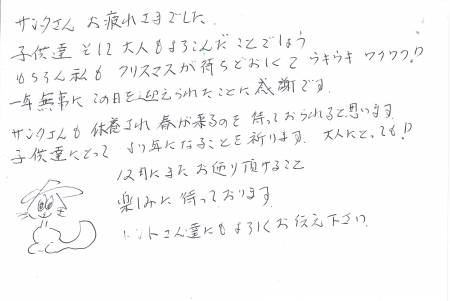 サンタさん お疲れさまでした。
子供達 そして大人もよろこんだことでしょう
もちろん私も クリスマスが待ちどおしくて ウキウキ ワクワク!!
一年無事に この日を迎えられたことに 感謝です。
サンタさんも 休養され 春が来るのを 待っておられると思います。
子供達にとって より年になることを祈ります。大人にとっても!!
12月にまた お便り頂けること
楽しみに待っております。
さん達にもよろしくお伝え下さい